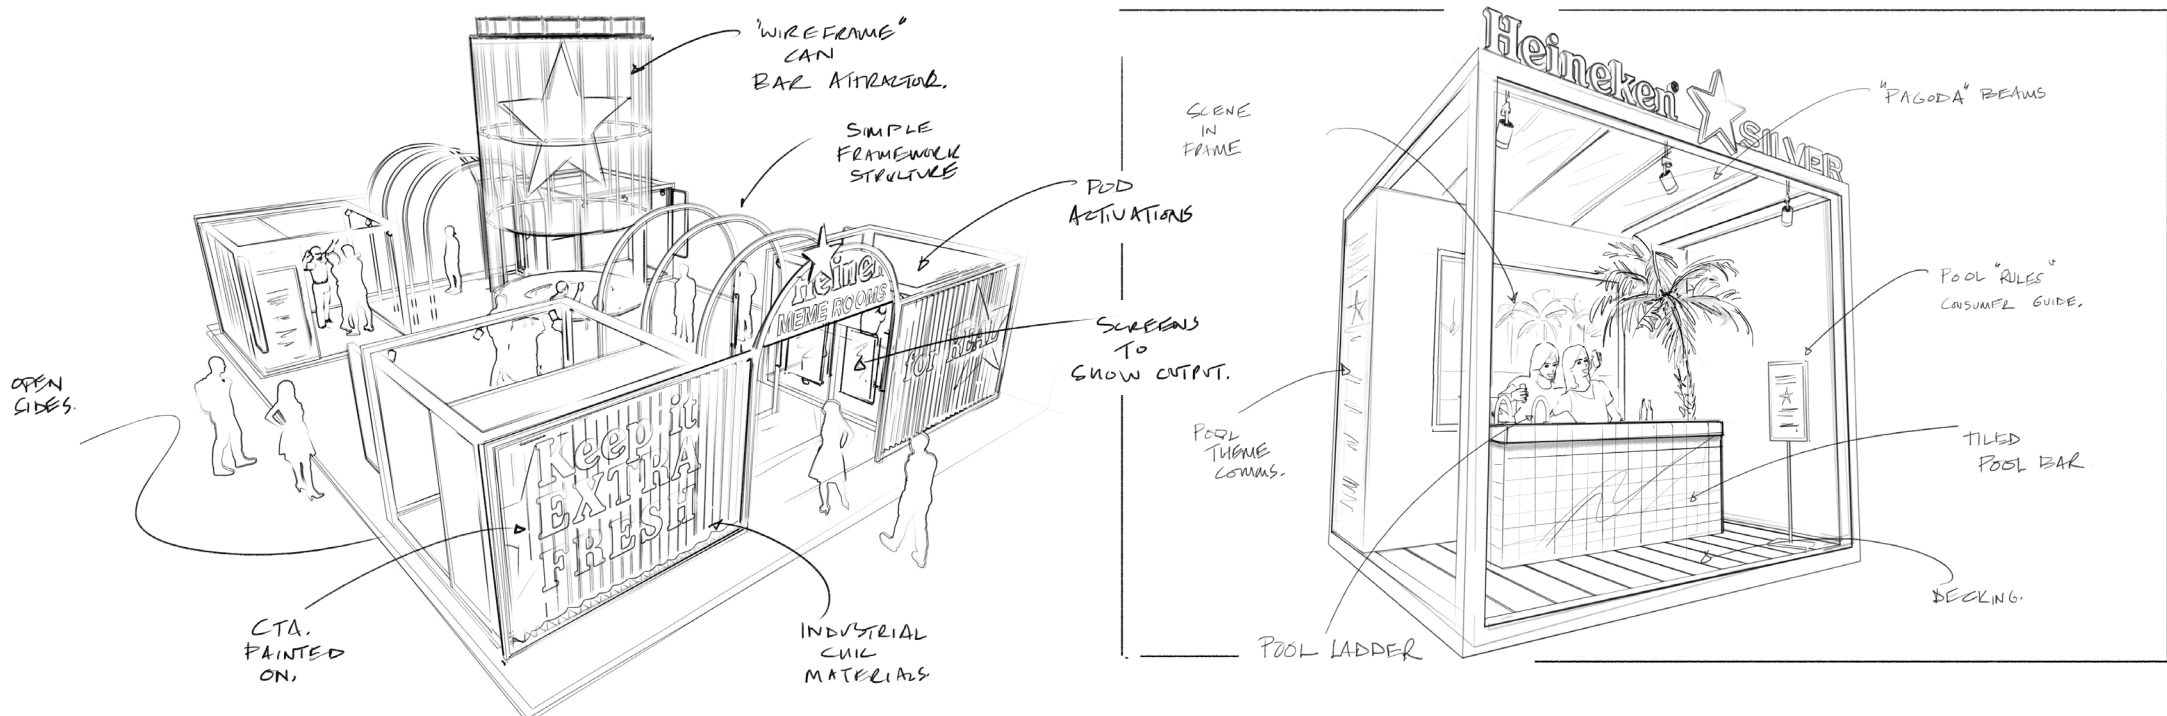 "WIREFRAME"
CAN
BAR ATTRACTOR.
SIMPLE
FRAMEWORK
STRUCTURE
POD
ACTIVATIONS
SCREENS
TO
SHOW OUTPUT.
OPEN
SIDES.
Heine
MEME ROOMS
for REAL
Keep it
EXTRA
FRESH
CTA.
PAINTED
ON.
INDUSTRIAL
CHIC
MATERIALS
Heineken
SILVER
SCENE
IN
FRAME
"PAGODA" BEAMS
POOL "RULES"
CONSUMER GUIDE.
POOL
THEME
COMMS.
TILED
POOL BAR
DECKING.
POOL LADDER